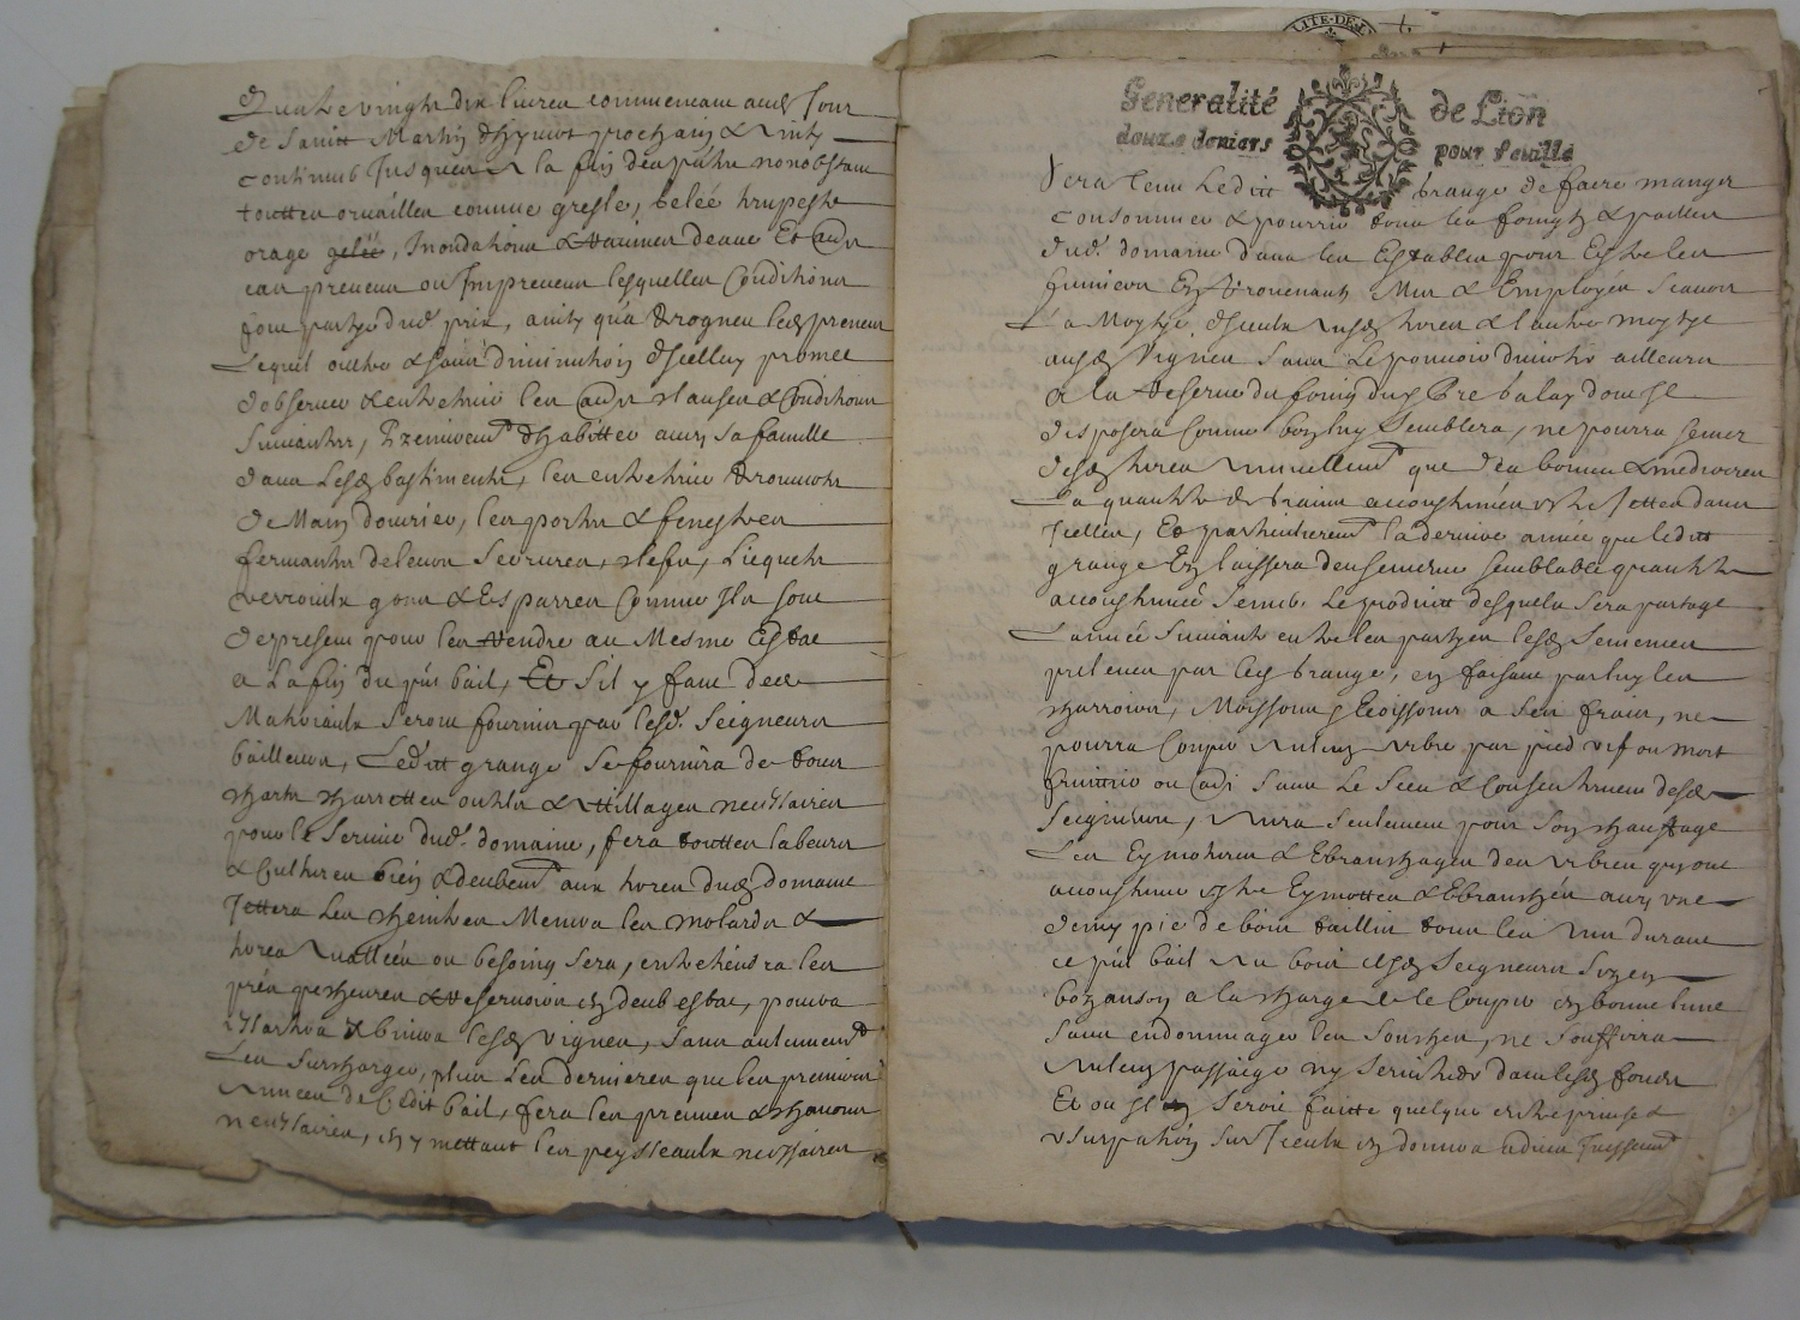 Quatre vingts dix livres commencant aud. Jour
de Sainct Martin d'hyver prochain & ainsy
continuer Jusques a la fin des pñtes nonobstant
touttes orvailles comme gresle, gelée tempeste
orage gelée, Inondations & ravines deaue Et autres
cas preveus ou Impreveus lesquelles Conditions
font partye dud. prix, ainsy qu'a
Lequel oultre & sans diminution d'Icelluy promet
d'observer & entretenir les autres clauses & Conditions
Suivantes, Premierement d'habitter avec sa famille
dans Lesd. bastiments, les entretenir
de Main d'ouvrier, les portes & fenestres
fermantes de leurs Serrures, clefs, Licquets
verrouils gons & Esparres Comme Ils sont
de present pour les rendre au Mesme Estat
a La fin du pñt bail, Et S'il y faut des
Matteriaulx Seront fournis par lesd. Seigneurs
bailleurs, Ledict grange Se fournira de tous
chars charrettes outils & attillages necessaires
pour le Service dud. domaine, fera touttes labeurs
& Cultures bien & deubement aux terres dud. domaine
Jettera Les cheintres Menera les molards &
terres avallées ou besoing sera, entretiendra les
prés pescheures & reservoirs en deub estat, pouera
& binera lesd. vignes, sans aulcunement
Les Surcharger, plus Les dernieres que les premieres
annees de Cedit bail, fera les preuves & chavons
necessaires, en y mettant les peysseaulx necessaires
Generalité de Lion
douze deniers pour feuille
Sera tenu Ledict Grange de faire manger
Consommer & pourrir tous les foings & pailles
dud. domaine dans les Estables pour Estre les
fumiers En Provenants Mis & Employés Scavoir
La Moytye d'Iceulx ausd. terres & l'autre moytye
ausd. Vignes Sans Le pouvoir divertir ailleurs
a la reserve du foing dud. Pre balay dont Il
disposera Comme bon luy Semblera, ne pourra semer
desd. terres annuellement que des bonnes & mediocres
La quantité de grains accoustumée estre Jettée dans
Icelles, Et particulierement la derniere année que ledict
grange En laissera d'ensemence semblable quantité
accoustumée Semer. Le produict desquels Sera partage
L'année Suivante entre les partyes lesd. Semences
prelevées par led. Grange, en faisant par luy les
charrois, Moissons & Ecossons a Ses frais, ne
pourra Couper aulcung arbre par pied vif ou mort
fruittier ou autre Sans Le Sceu & Consentement desd.
Seigneurs, aura Seulement pour Son chauffage
Les Eymotures & Ebranchages des arbres qu'ont
accoustume estre Eymottés & Ebranchés avec une
demy pie de bois taillis tous les ans durant
ce pñt bail au bois desd. Seigneurs
a la charge de le Couper en bonne lune
sans endommager les Souches, ne Souffrira
aulcung passage ny Servitude dans lesd. fonds
Et ou Il y Seroit faitte quelque entreprinse &
usurpation Sur Iceulx en donnera advis